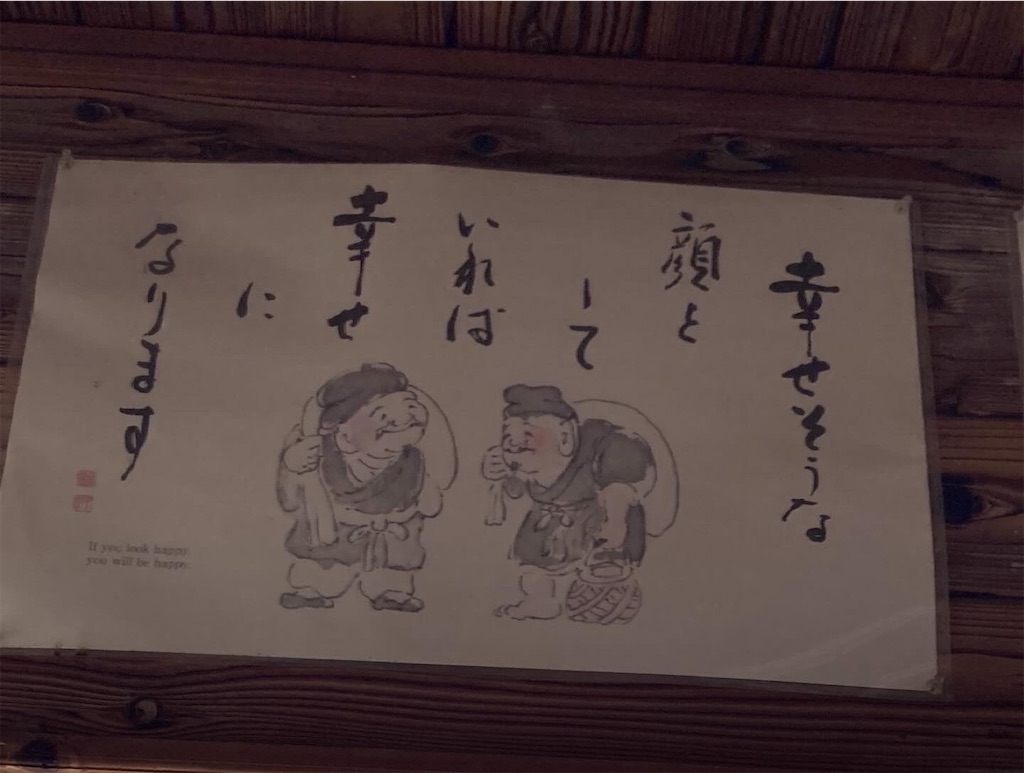 幸せそうな
顔と
して
いれば
幸せ
に
なります
If you look happy
you will be happy.